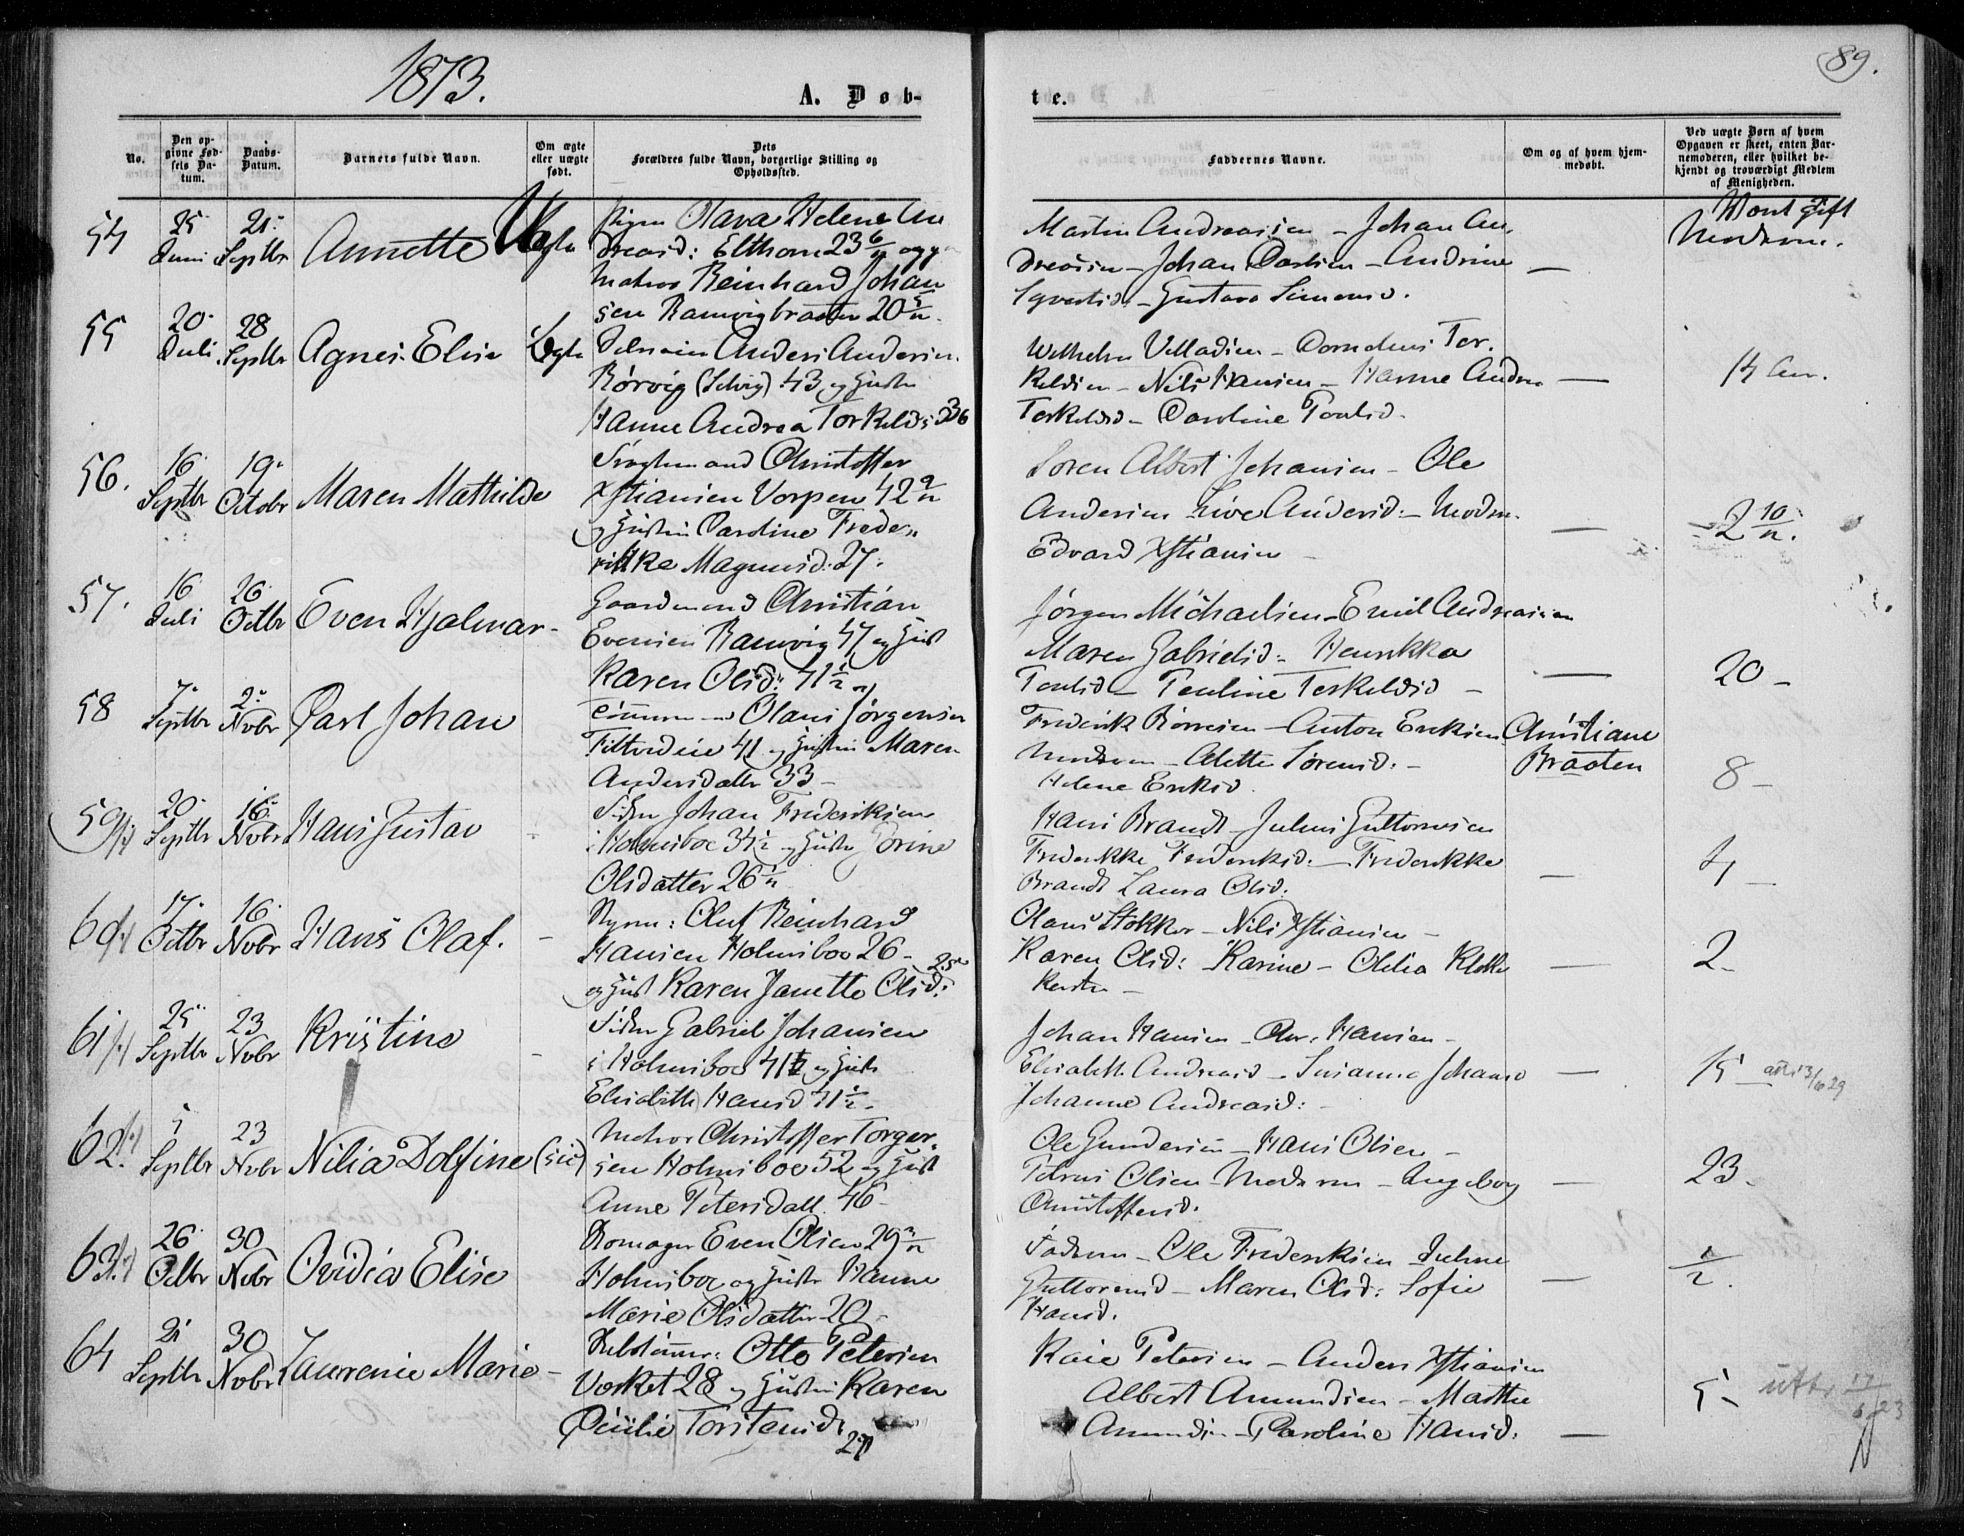 1873.
89.
A. Døb-
te.
No.
Den opgivne Fødsels Datum.
Daabs-Datum.
Barnets fulde Navn.
Om ægte eller uægte født.
Dets Forældres fulde Navn, borgerlige Stilling og Opholdssted.
Faddernes Navne.
Om og af hvem hjemmedøbt.
Ved uægte Børn af hvem Opgaven er skeet, enten Barnemoderen, eller hvilket bekjendt og troværdigt Medlem af Menigheden.
54
25 Juni
21 Septbr
Annette
Uægte
Pigen Olava Helene An
dreasd: Elthom 23 6/12 og
Matros Reinhard Johan
sen Ramvigbraaten 20
Martin Andreassen – Johan An
dreasen – Johan – Andrine
– Gustava Simensd.
Moderen.
55
20 Juli
28 Septbr
Agnes Elise
Ægte
Anders Andersen
Rørvig (Selvig) 43 og Hustru
Hanne Andrea Torkelds 36
Wilhelm – Cornelius Tor
keldsen – Nils Hansen – Hanne Andrea
Torkeldsd – Caroline Poulsd.
—
14 Aar.
56.
16 Septbr
19 Octobr
Maren Mathilde
Christoffer
Xstiansen Vorpen 42 9/12
og Hustru Caroline Frede
rikke Magnusd. 27.
Soren Albert Johansen – Ole
Andersen Live Andersd: – Modern
Edvard Xstiansen –
—
2 10/12.
57.
16 Juli
26 Octbr
Even Hjalmar
–
Gaardmand Christian
Evensen Ramvig 47 og Hust
Karen Olsd: 41 1/2
Jørgen Michaelsen – Emil Andreasen
Maren Gabrielsd: – Henrikka
Poulsd – Pauline Torkeldsd –
—
20 –
58
7 Septbr
2 Novbr
Carl Johan
Tømmermand Olaus Jørgensen
Filtvedeie 41 og Hustru Maren
Andersdatter 33 –
Frederik Børresen – Anton Eriksen
Moderen – Alette Sorensd. –
Helene Eriksd.
Christiane
Braaten
8 –
59
20 Septbr
16 Novbr
Hans Gustav
Johan Frederiksen
i Holmsboe 34 1/2 og Hustru Torine
Olsdatter 26
Hans Brandt – Julius Guttormsen
Frederikke Frederiksd. – Frederikke
Brandt Laura Olsd.
—
4 –
60
17 Octbr
16 Novbr
Hans Olaf.
–
Oluf Reinhard
Hansen Holmsboe 26 –
og Hust Karen Janette Olsd: 25
Olaus Stokker – Nils Xstiansen –
Karen Olsd: Karine –
—
2 –
61
25 Septbr
23 Novbr
Kristine
–
Gabriel Johansen
i Holmsboe 41 1/2 og Hustr
Elisabeth Hansd 41 1/2.
Johan Hansen – Chr. Hansen –
Elisabeth Andreasd – Susanne Johansd
Johanne Andreasd: –
—
15 –
att. 13/6 29
62.
5 Septbr
23 Novbr
Nilia Dolfine (sic)
Matros Christoffer Torger
sen Holmsboe 52 og Hust
Anne Petersdatt. 46 –
Ole Gundersen – Hans Olsen –
Petrus Olsen – Moderen – Ingeborg
Christoffersd.
—
23 –
63
26 Octbr
30 Novbr
Ovidia Elise
Skomager Even Olsen 29
Holmsboe og Hustr Hanne
Marie Olsdatter 20 –
Faderen – Ole Frederiksen
Guttormsd – Maren Olsd: Sofie
Hansd.
—
1/2.
64
21 Septbr
30 Novbr
Laurense Marie
–
Otto Petersen
Værket 28 og Hustru Karen
Cecilie Torstensd. 27
Kaie Petersen – Anders Xstiansen
Albert Amundsen – Marthe
Amundsen – Caroline Hansd.
—
5 –
utt. 17/6 23